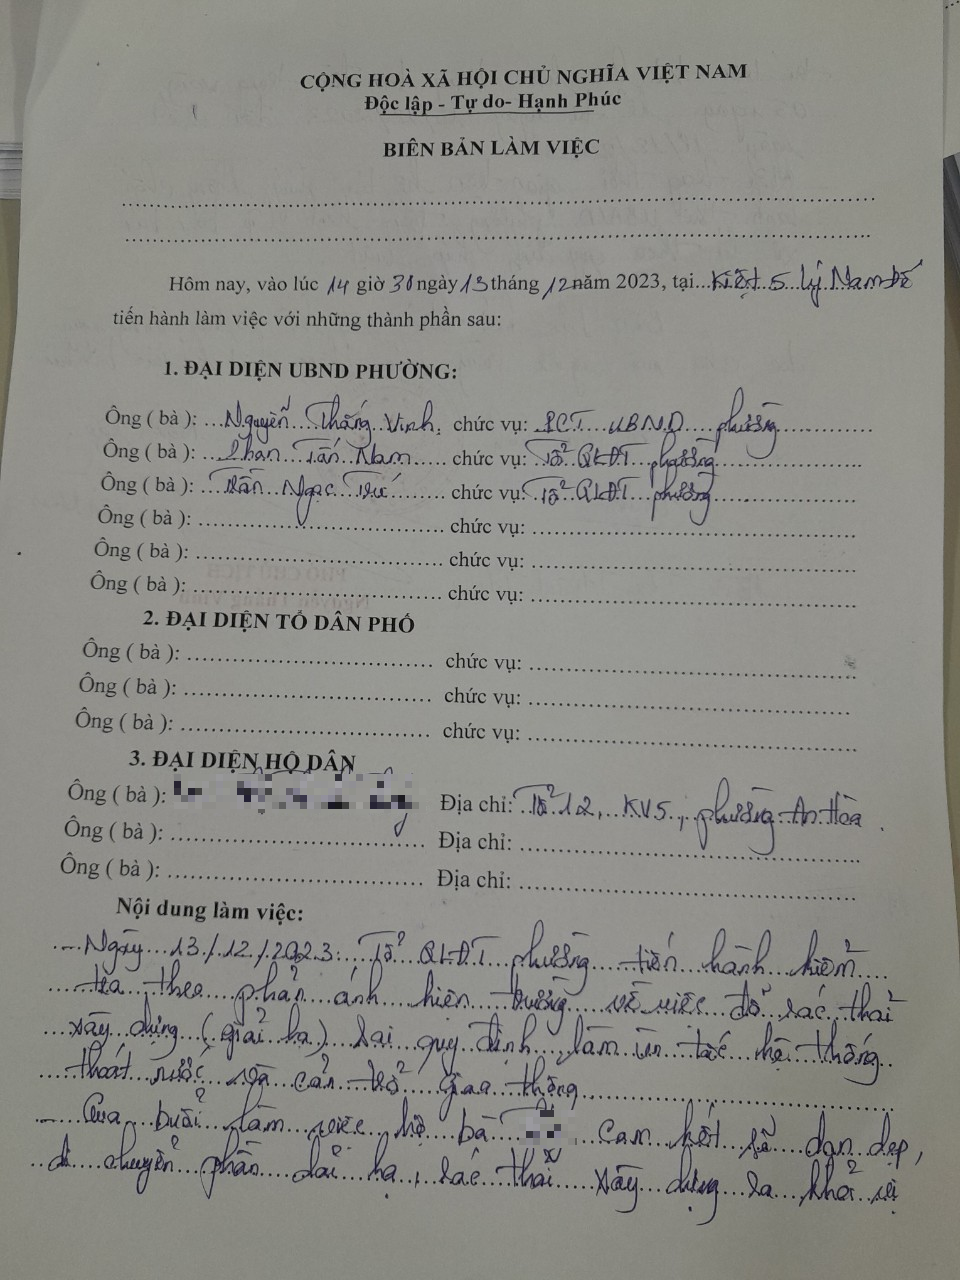 CỘNG HOÀ XÃ HỘI CHỦ NGHĨA VIỆT NAM
Độc lập - Tự do- Hạnh Phúc
BIÊN BẢN LÀM VIỆC
Hôm nay, vào lúc 14 giờ 30 ngày 13 tháng 12 năm 2023, tại Kiệt 5 Lý Nam Đế
tiến hành làm việc với những thành phần sau:
1. ĐẠI DIỆN UBND PHƯỜNG:
Ông ( bà ): Nguyễn Thắng Vinh. chức vụ: PCT UBND phường
Ông ( bà ): Phan Tấn Nam chức vụ: Tổ QLĐT phường
Ông ( bà ): Trần Ngọc chức vụ: Tổ QLĐT phường
Ông ( bà ): chức vụ:
Ông ( bà ): chức vụ:
Ông ( bà ): chức vụ:
2. ĐẠI DIỆN TỔ DÂN PHỐ
Ông ( bà ): chức vụ:
Ông ( bà ): chức vụ:
Ông ( bà ): chức vụ:
3. ĐẠI DIỆN HỘ DÂN
Ông ( bà ): Địa chỉ: Tổ 12, KV5, phường An Hòa.
Ông ( bà ): Địa chỉ:
Ông ( bà ): Địa chỉ:
Nội dung làm việc:
- Ngày 13/12/2023: Tổ QLĐT phường tiến hành kiểm
tra theo phản ánh hiện trường về việc đổ rác thải
xây dựng (giải hạ) sai quy định làm ùn tắc hệ thống
thoát nước và cản trở giao thông
- Qua buổi làm việc hộ bà cam kết sẽ dọn dẹp,
di chuyển phần giải hạ, rác thải xây dựng ra khỏi vị